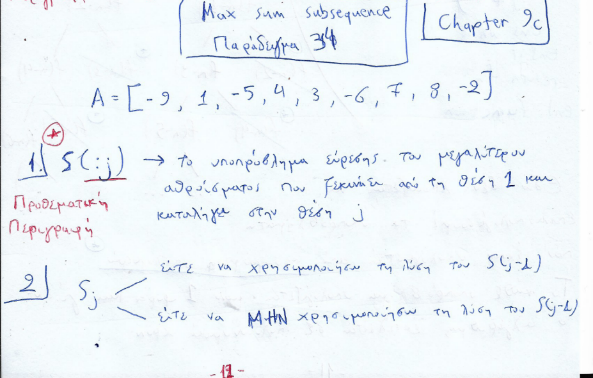 Max sum subsequence
Παράδειγμα 34
Chapter 9c
A = [-9, 1, -5, 4, 3, -6, 7, 8, -2]
1. S(:j) → το υποπρόβλημα εύρεσης του μεγαλύτερου
αθροίσματος που ξεκινάει από τη θέση 1 και
καταλήγει στην θέση j
Προθεματική
Περιγραφή
2 Sj
είτε να χρησιμοποιήσω τη λύση του S(j-1)
είτε να ΜΗΝ χρησιμοποιήσω τη λύση του S(j-1)